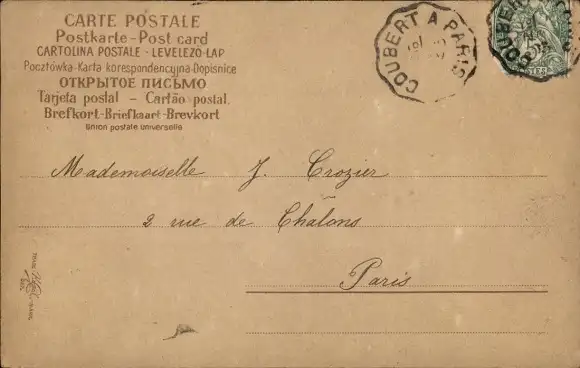 CARTE POSTALE
Postkarte - Post card
CARTOLINA POSTALE - LEVELEZŐ-LAP
Pocztówka-Karta korespondencyjna-Dopisnice
ОТКРЫТОЕ ПИСЬМО
Tarjeta postal - Cartão postal.
Brefkort-Briefkaart-Brevkort
Union postale universelle
COUBERT A PARIS
COUBERT
Mademoiselle J. Crozier
2 rue de Châlons
Paris